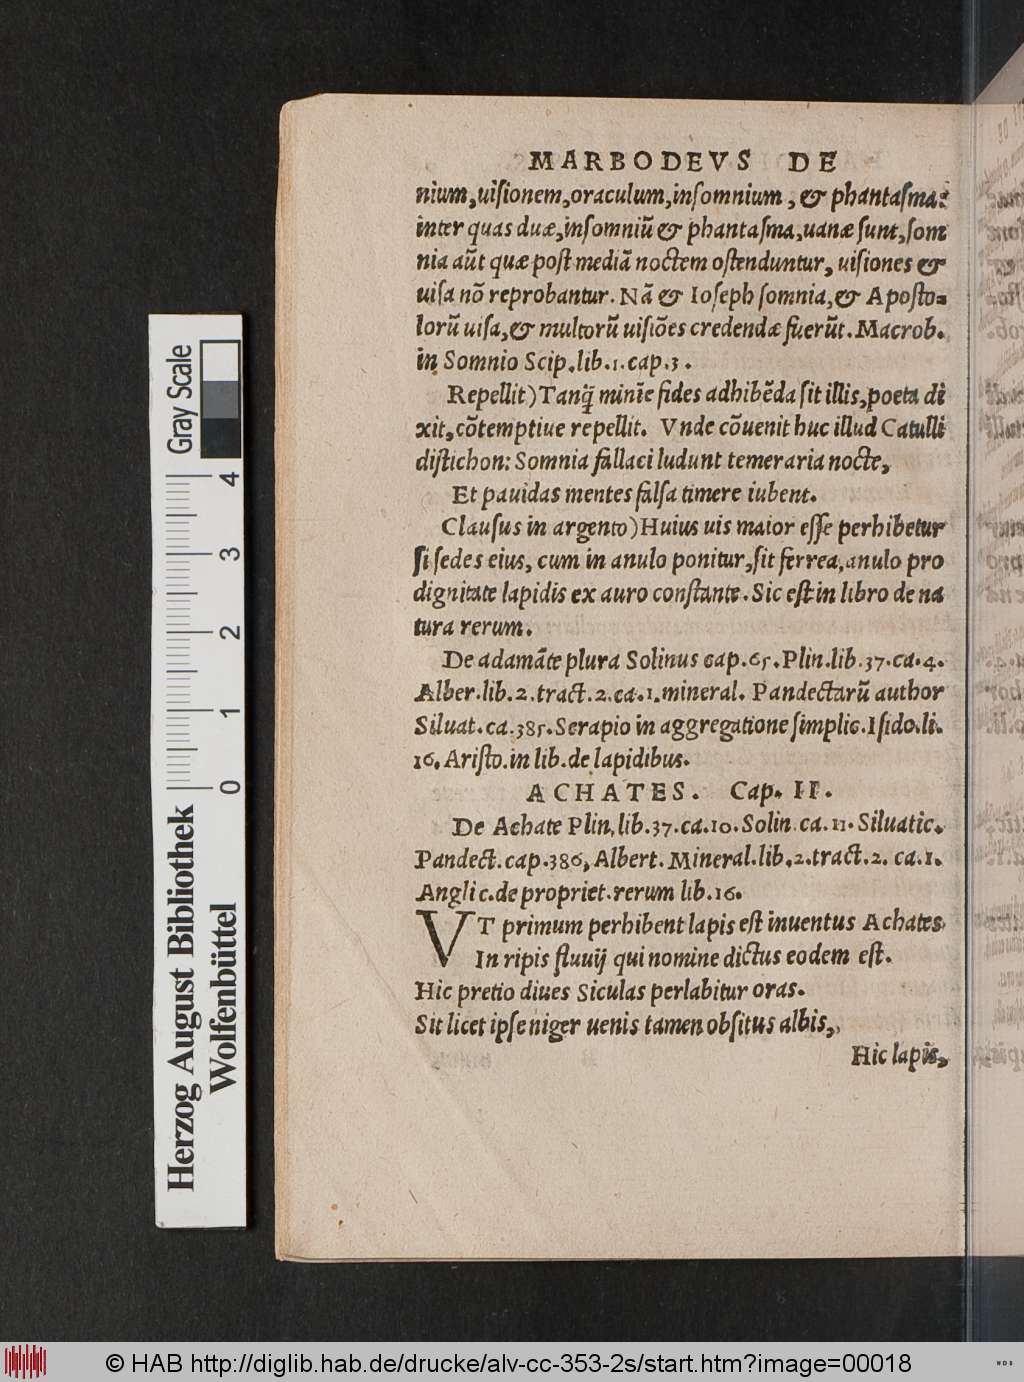 MARBODEVS DE
nium,uiſionem,oraculum,inſomnium, & phantaſma:
inter quas duæ,inſomniũ & phantaſma,uanæ ſunt,ſom
nia aũt quæ poſt mediã noctem oſtenduntur, uiſiones &
uiſa nõ reprobantur. Nã & Ioſeph ſomnia,& Apoſto=
lorũ uiſa,& multorũ uiſiões credendæ fuerũt. Macrob.
in Somnio Scip.lib.1.cap.3.
Repellit) Tanq̃ minĩe fides adhibẽda ſit illis,poeta di
xit,cõtemptiue repellit. Vnde cõuenit huc illud Catulli
diſtichon: Somnia fallaci ludunt temeraria nocte,
Et pauidas mentes falſa timere iubent.
Clauſus in argento) Huius uis maior eſſe perhibetur
ſi ſedes eius, cum in anulo ponitur,ſit ferrea,anulo pro
dignitate lapidis ex auro conſtante. Sic eſt in libro de na
tura rerum.
De adamãte plura Solinus cap.65. Plin.lib.37.ca.4.
Alber.lib.2.tract.2.ca.1.mineral. Pandectarũ author
Siluat.ca.385.Serapio in aggregatione ſimplic.Iſido.li.
16. Ariſto.in lib.de lapidibus.
ACHATES. Cap. II.
De Achate Plin.lib.37.ca.10.Solin.ca.11.Siluatic.
Pandect.cap.386, Albert. Mineral.lib.2.tract.2. ca.1.
Anglic.de propriet.rerum lib.16.
VT primum perhibent lapis eſt inuentus Achates,
In ripis fluuij qui nomine dictus eodem eſt.
Hic pretio diues Siculas perlabitur oras.
Sit licet ipſe niger uenis tamen obſitus albis,
Hic lapis,
Gray Scale
4
3
2
1
0
Herzog August Bibliothek
Wolfenbüttel
© HAB http://diglib.hab.de/drucke/alv-cc-353-2s/start.htm?image=00018